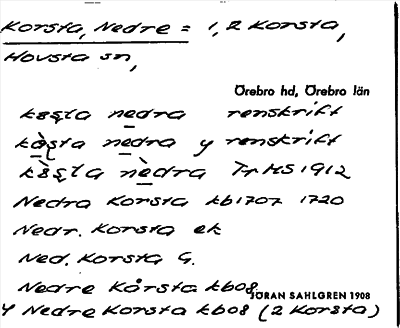 Korsta, Nedre = 1, 2 Korsta,
Hovsta sn,
Örebro hd, Örebro län
nedra renskrift
nedra y renskrift
nèdra Tr MS 1912
Nedra Korsta kb1707 1720
Nedr. Korsta ek
Ned. Korsta G.
Nedre Kårsta kb08
JÖRAN SAHLGREN 1908
y Nedre Korsta kb08 (2 Korsta)